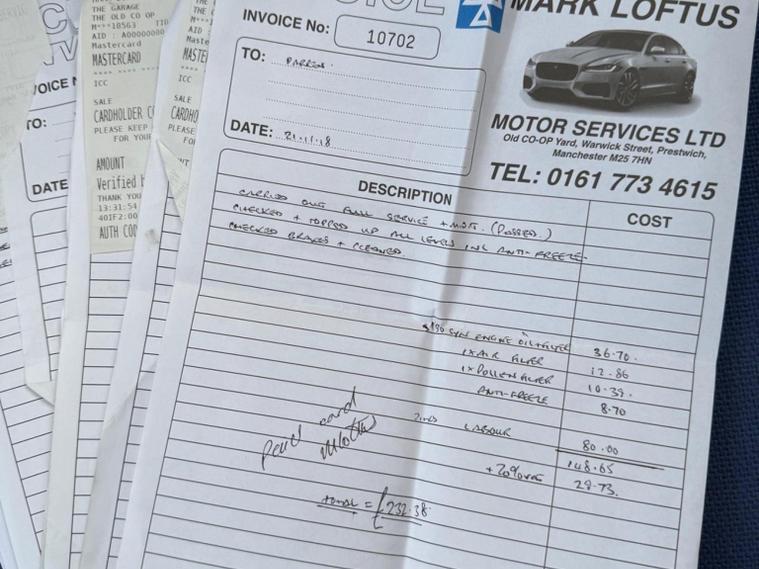 MARK LOFTUS
INVOICE No: 10702
TO:
DATE: 21.11.18
MOTOR SERVICES LTD
Old CO-OP Yard, Warwick Street, Prestwich,
Manchester M25 7HN
TEL: 0161 773 4615
DESCRIPTION COST
CARRIED OUT FULL SERVICE + M.O.T. (PASSED.)
CHECKED + TOPPED UP ALL LEVELS INC ANTI-FREEZE.
CHECKED BRAKES + CLEANED
SYN ENGINE OIL+FILTER 36.70.
1x AIR FILTER 12.86
1x POLLEN FILTER 10.39.
ANTI-FREEZE 8.70
LABOUR 80.00
148.65
+ 20% VAT 29.73.
Paid card
total = £232.38
GARAGE
THE OLD CO OP
M***10563
AID : A00000000
Mastercard
MASTERCARD
ICC
SALE
CARDHOLDER
PLEASE KEEP
FOR YOUR
AMOUNT
Verified
THANK YOU
13:31:54
AUTH COD
THE
AID :
Maste
ICC
SALE
CARDHO
PLEASE
FOR
TO:
DATE